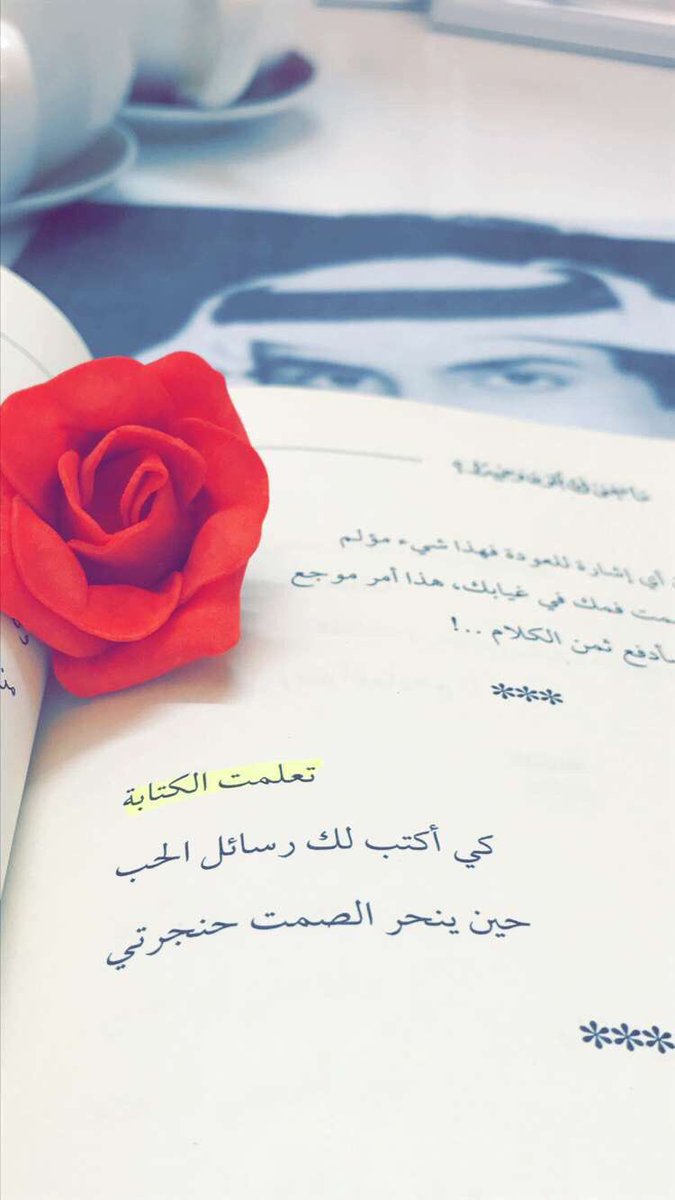 أي إشارة للعودة فهذا شيء مؤلم
فمك في غيابك، هذا أمر موجع
سأدفع ثمن الكلام ...!
***
تعلمت الكتابة
كي أكتب لك رسائل الحب
حين ينحر الصمت حنجرتي
***